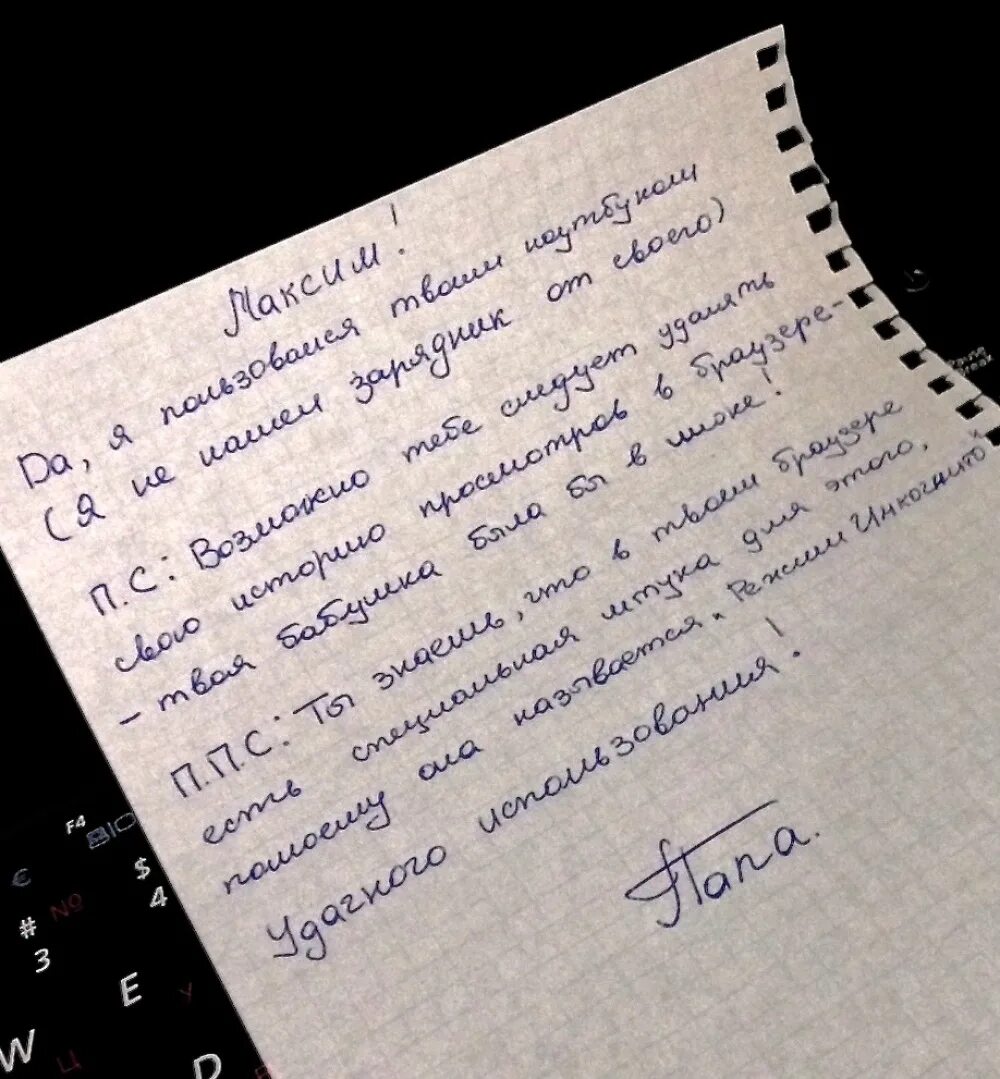 Максим!
Да, я пользовался твоим ноутбуком
(Я не нашел зарядник от своего)
П.С: Возможно тебе следует удалять
свою историю просмотров в браузере-
- твоя бабушка была бы в шоке!
П.П.С: Ты знаешь, что в твоем браузере
есть специальная штука для этого,
помоему она называется „Режим Инкогнито"
Удачного использования!
Папа.
F4
€
$
4
#
№
3
E
У
W
Ц
D